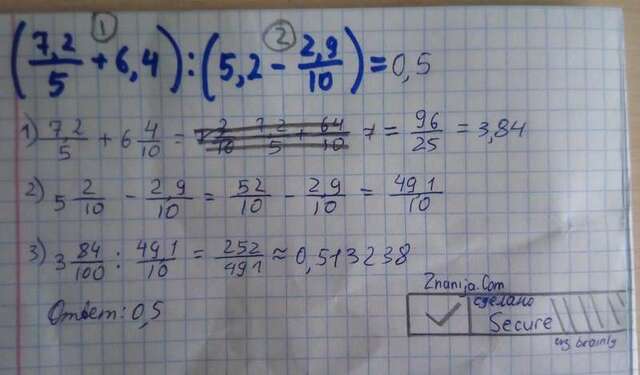 ① ②
(7,2/5 + 6,4) : (5,2 - 2,9/10) = 0,5
1) 7,2/5 + 6 4/10 = = 96/25 = 3,84
2) 5 2/10 - 2,9/10 = 52/10 - 2,9/10 = 49,1/10
3) 3 84/100 : 49,1/10 = 252/491 ≈ 0,513238
Ответ: 0,5
Znanija.Com
сделано
Secure
brainly